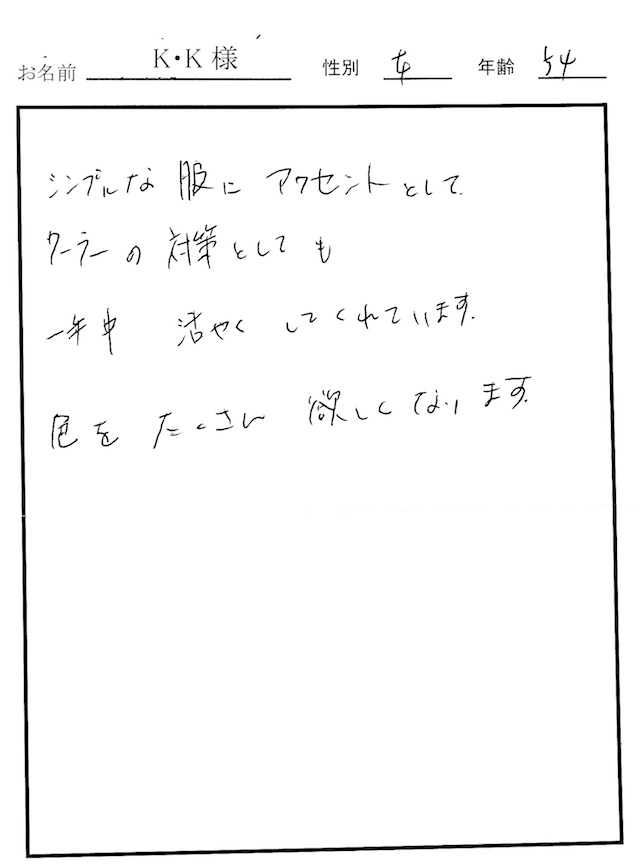 お名前 K・K 様 性別 女 年齢 54
シンプルな 服に アクセントとして
クーラーの 対策としても
一年中 活やく してくれています.
色を たくさん 欲しくなります.